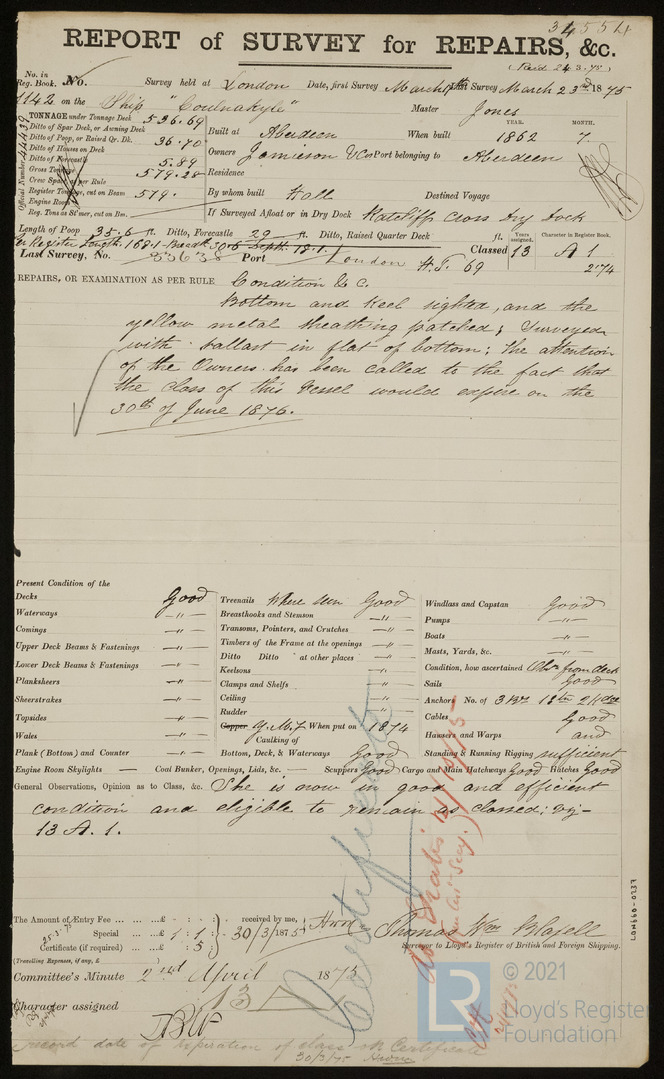 34554
REPORT of SURVEY for REPAIRS, &c.
(Recd 24.3.75)
No. in Reg. Book. No. Survey held at London Date, first Survey March Last Survey March 23rd 1875
1142 on the Ship "Coulnakyle" Master Jones
TONNAGE under Tonnage Deck 536.69
Ditto of Spar Deck, or Awning Deck
Ditto of Poop, or Raised Qr. Dk. 36.70
Ditto of Houses on Deck
Ditto of Forecastle 5.89
Gross Tonnage 579.28
Crew Space as per Rule
Register Tonnage, cut on Beam 579.
Engine Room
Reg. Tons as St'mer, cut on Bm.
Official Number 44439
YEAR. MONTH.
Built at Aberdeen When built 1862 7
Owners Jamieson & Co Port belonging to Aberdeen
Residence
By whom built Hall Destined Voyage
If Surveyed Afloat or in Dry Dock Ratcliffe Cross Dry Dock
Length of Poop 35.6 ft. Ditto, Forecastle 29 ft. Ditto, Raised Quarter Deck ft.
Per Register Length 168.1 Breadth 30.6 Depth 18.1
Last Survey, No. 33638 Port London H.T. 69
Classed Years assigned. 13 Character in Register Book. A 1
2.74
REPAIRS, OR EXAMINATION AS PER RULE Condition &c.
Bottom and keel sighted, and the
yellow metal sheathing patched; Surveyed
with ballast in flat of bottom; the attention
of the Owners has been called to the fact that
the class of this vessel would expire on the
30th of June 1876.
Present Condition of the
Decks Good
Waterways —"—
Comings —"—
Upper Deck Beams & Fastenings —"—
Lower Deck Beams & Fastenings —"—
Planksheers —"—
Sheerstrakes —"—
Topsides —"—
Wales —"—
Plank (Bottom) and Counter —"—
Treenails Where seen Good
Breasthooks and Stemson —"—
Transoms, Pointers, and Crutches —"—
Timbers of the Frame at the openings —"—
Ditto Ditto at other places —"—
Keelsons —"—
Clamps and Shelfs —"—
Ceiling —"—
Rudder —"—
Copper Y.M.S When put on 1874
Caulking of
Bottom, Deck, & Waterways Good
Windlass and Capstan Good
Pumps —"—
Boats —"—
Masts, Yards, &c. —"—
Condition, how ascertained Obsn from deck
Sails Good
Anchors No. of 3 Br 1 Stn 2 Kdge
Cables Good
Hawsers and Warps and
Standing & Running Rigging sufficient
Engine Room Skylights — Coal Bunker, Openings, Lids, &c. Scuppers Good Cargo and Main Hatchways Good Hatches Good
General Observations, Opinion as to Class, &c. She is now in good and efficient
condition and eligible to remain as classed: viz—
13 A. 1.
Certificate
The Amount of Entry Fee ... ... ...£ : : received by me,
Special ... ...£ 1 : 1 : 30/3/1875
Certificate (if required) ... ...£ : 5 :
25.3.75
(Travelling Expenses, if any, £ )
Thomas Wm Blafell
Surveyor to Lloyd's Register of British and Foreign Shipping.
Committee's Minute 2nd April 1875
Character assigned 13 A
record date of expiration of class on Certificate
30/3/75
LON660-0237
© 2021
LR
Lloyd's Register
Foundation